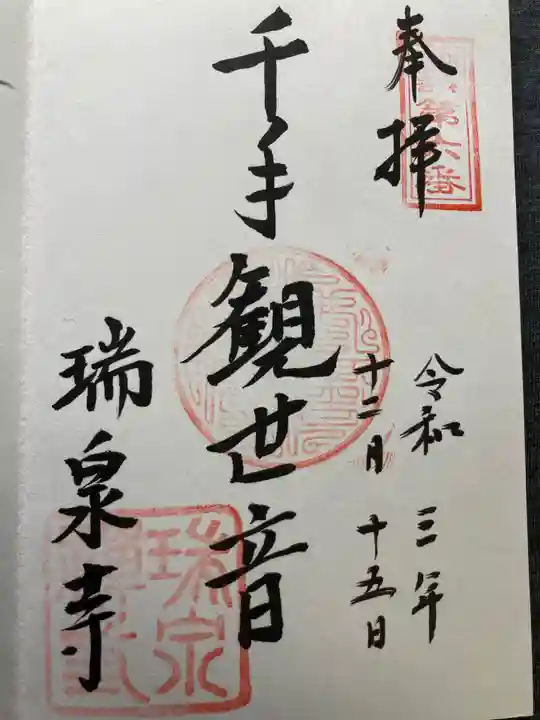 奉拝
第六番
令和三年
十二月十五日
千手観世音
瑞泉寺